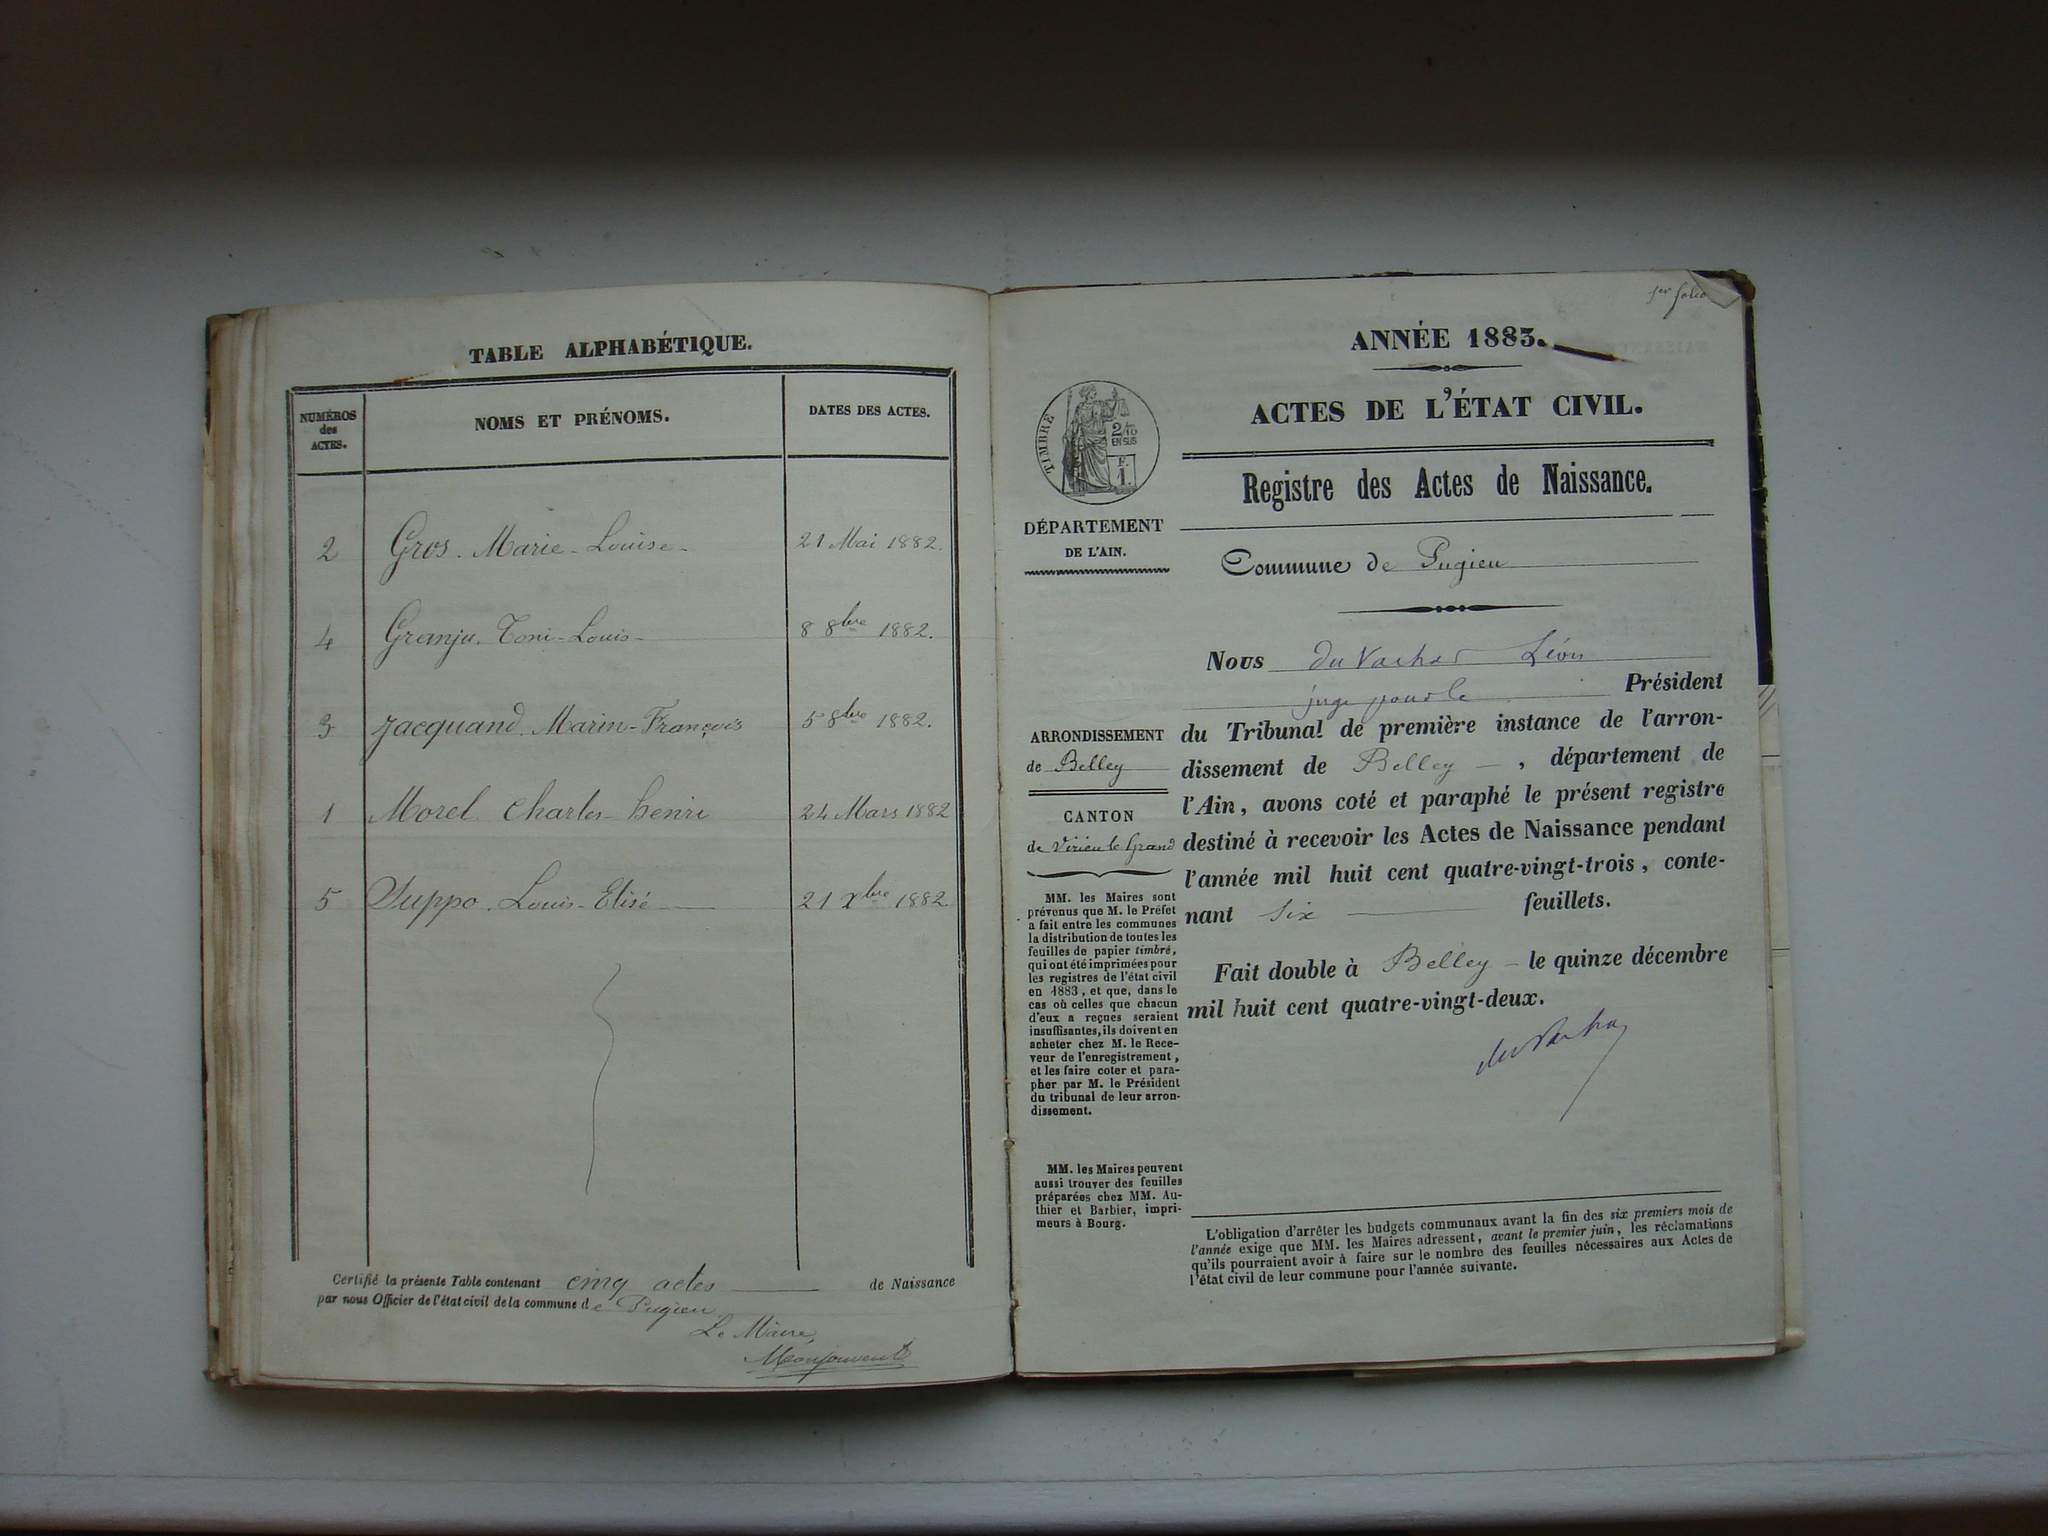 TABLE ALPHABÉTIQUE.
NUMÉROS
des
ACTES.
NOMS ET PRÉNOMS.
DATES DES ACTES.
2 Gros. Marie-Louise 21 Mai 1882.
4 Granju. Toni-Louis 8 8bre 1882.
3 Jacquand. Marin-François 5 8bre 1882.
1 Morel. Charles-henri 24 Mars 1882
5 Suppo. Louis-Elisé 21 Xbre 1882.
Certifié la présente Table contenant cinq actes de Naissance
par nous Officier de l'état civil de la commune de Pugieu
Le Maire,
Monjouvent
1er folio
ANNÉE 1883.
ACTES DE L'ÉTAT CIVIL.
Registre des Actes de Naissance.
TIMBRE
2/10
EN SUS
F.
1.
DÉPARTEMENT
DE L'AIN.
Commune de Pugieu
Nous Léon
juge pour le Président
du Tribunal de première instance de l'arron-
dissement de Belley, département de
l'Ain, avons coté et paraphé le présent registre
destiné à recevoir les Actes de Naissance pendant
l'année mil huit cent quatre-vingt-trois, conte-
nant six feuillets.
Fait double à Belley le quinze décembre
mil huit cent quatre-vingt-deux.
ARRONDISSEMENT
de Belley
CANTON
de Virieu le Grand
MM. les Maires sont
prévenus que M. le Préfet
a fait entre les communes
la distribution de toutes les
feuilles de papier timbré,
qui ont été imprimées pour
les registres de l'état civil
en 1883, et que, dans le
cas où celles que chacun
d'eux a reçues seraient
insuffisantes, ils doivent en
acheter chez M. le Rece-
veur de l'enregistrement,
et les faire coter et para-
pher par M. le Président
du tribunal de leur arron-
dissement.
MM. les Maires peuvent
aussi trouver des feuilles
préparées chez MM. Au-
thier et Barbier, impri-
meurs à Bourg.
L'obligation d'arrêter les budgets communaux avant la fin des six premiers mois de
l'année exige que MM. les Maires adressent, avant le premier juin, les réclamations
qu'ils pourraient avoir à faire sur le nombre des feuilles nécessaires aux Actes de
l'état civil de leur commune pour l'année suivante.